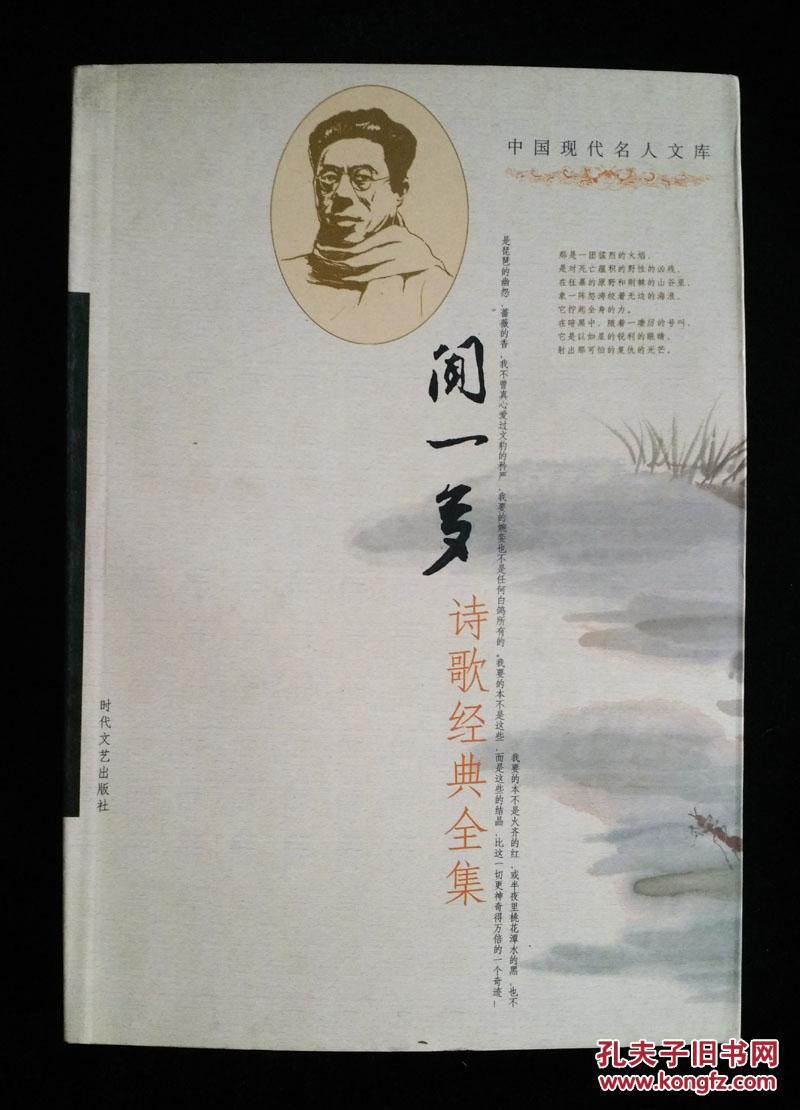 中国现代名人文库
那是一团猛烈的火焰,
是对死亡蕴积的野性的凶残,
在狂暴的原野和荆棘的山谷里,
象一阵怒涛绞着无边的海浪,
它拧起全身的力。
在暗黑中,随着一声凄厉的号叫,
它是以如星的锐利的眼睛,
射出那可怕的复仇的光芒。
闻一多
诗歌经典全集
我要的本不是火齐的红,或半夜里桃花潭水的黑,也不
是琵琶的幽怨,蔷薇的香,我不曾真心爱过文豹的矜严,我要的婉娈也不是任何白鸽所有的。我要的本不是这些,而是这些的结晶,比这一切更神奇得万倍的一个奇迹!
时代文艺出版社
孔夫子旧书网
www.kongfz.com